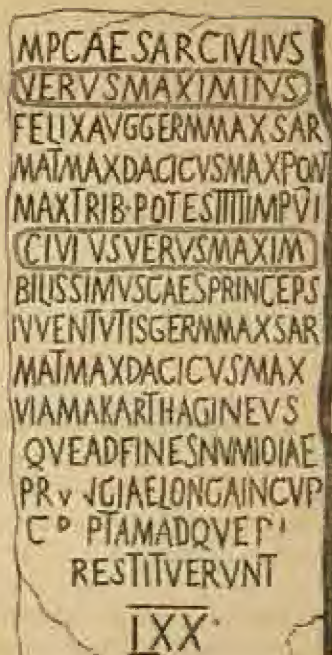 MPCAESARCIVLIVS
VERVSMAXIMINVS
FELIXAVGGERMMAXSAR
MATMAXDACICVSMAXPON
MAXTRIB·POTESTIIIIIMPVI
CIVI VSVERVSMAXIM
BILISSIMVSCAESPRINCEPS
IVVENTVTISGERMMAXSAR
MATMAXDACICVSMAX
VIAMAKARTHAGINEVS
QVEADFINESNVMIDIAE
RESTITVERVNT
IXX